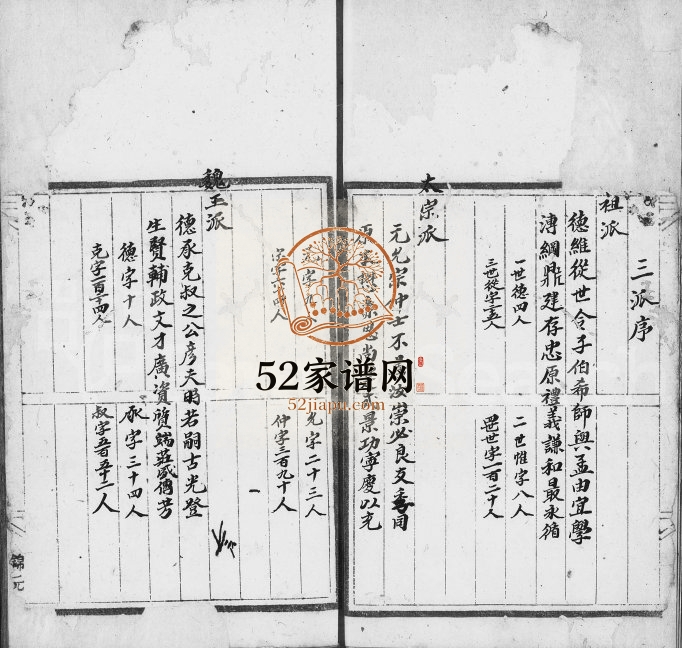 三派序
祖派
德維從世令子伯希師與孟由宜學
溥綱鼎建存忠原禮義謙和最永循
一世德四人
二世惟字八人
三世從字
世字一百二十人
太宗派
元允宗仲士不 汝崇必良友 同
景功寧慶以克
元字九人
允字二十三人
宗字六十四人
仲字三百九十人
一
魏王派
德承克叔之公彦夫時若嗣古光登
生賢輔政文才廣資質端莊盛傳芳
德字十人
承字三十四人
克字百 四人
叔字五百五十二人
錦一元
52家谱网
52jiapu.com